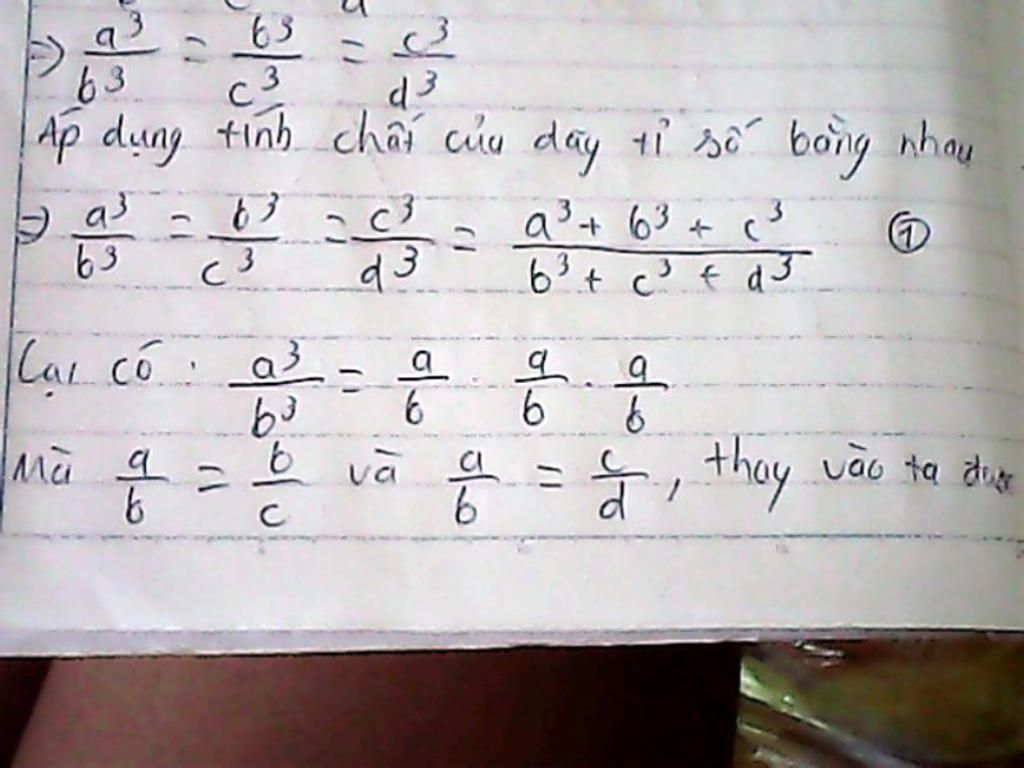 ⇒ a³/b³ = b³/c³ = c³/d³
Áp dụng tính chất của dãy tỉ số bằng nhau
⇒ a³/b³ = b³/c³ = c³/d³ = (a³ + b³ + c³)/(b³ + c³ + d³) ①
Lại có : a³/b³ = a/b . a/b . a/b
Mà a/b = b/c và a/b = c/d, thay vào ta được